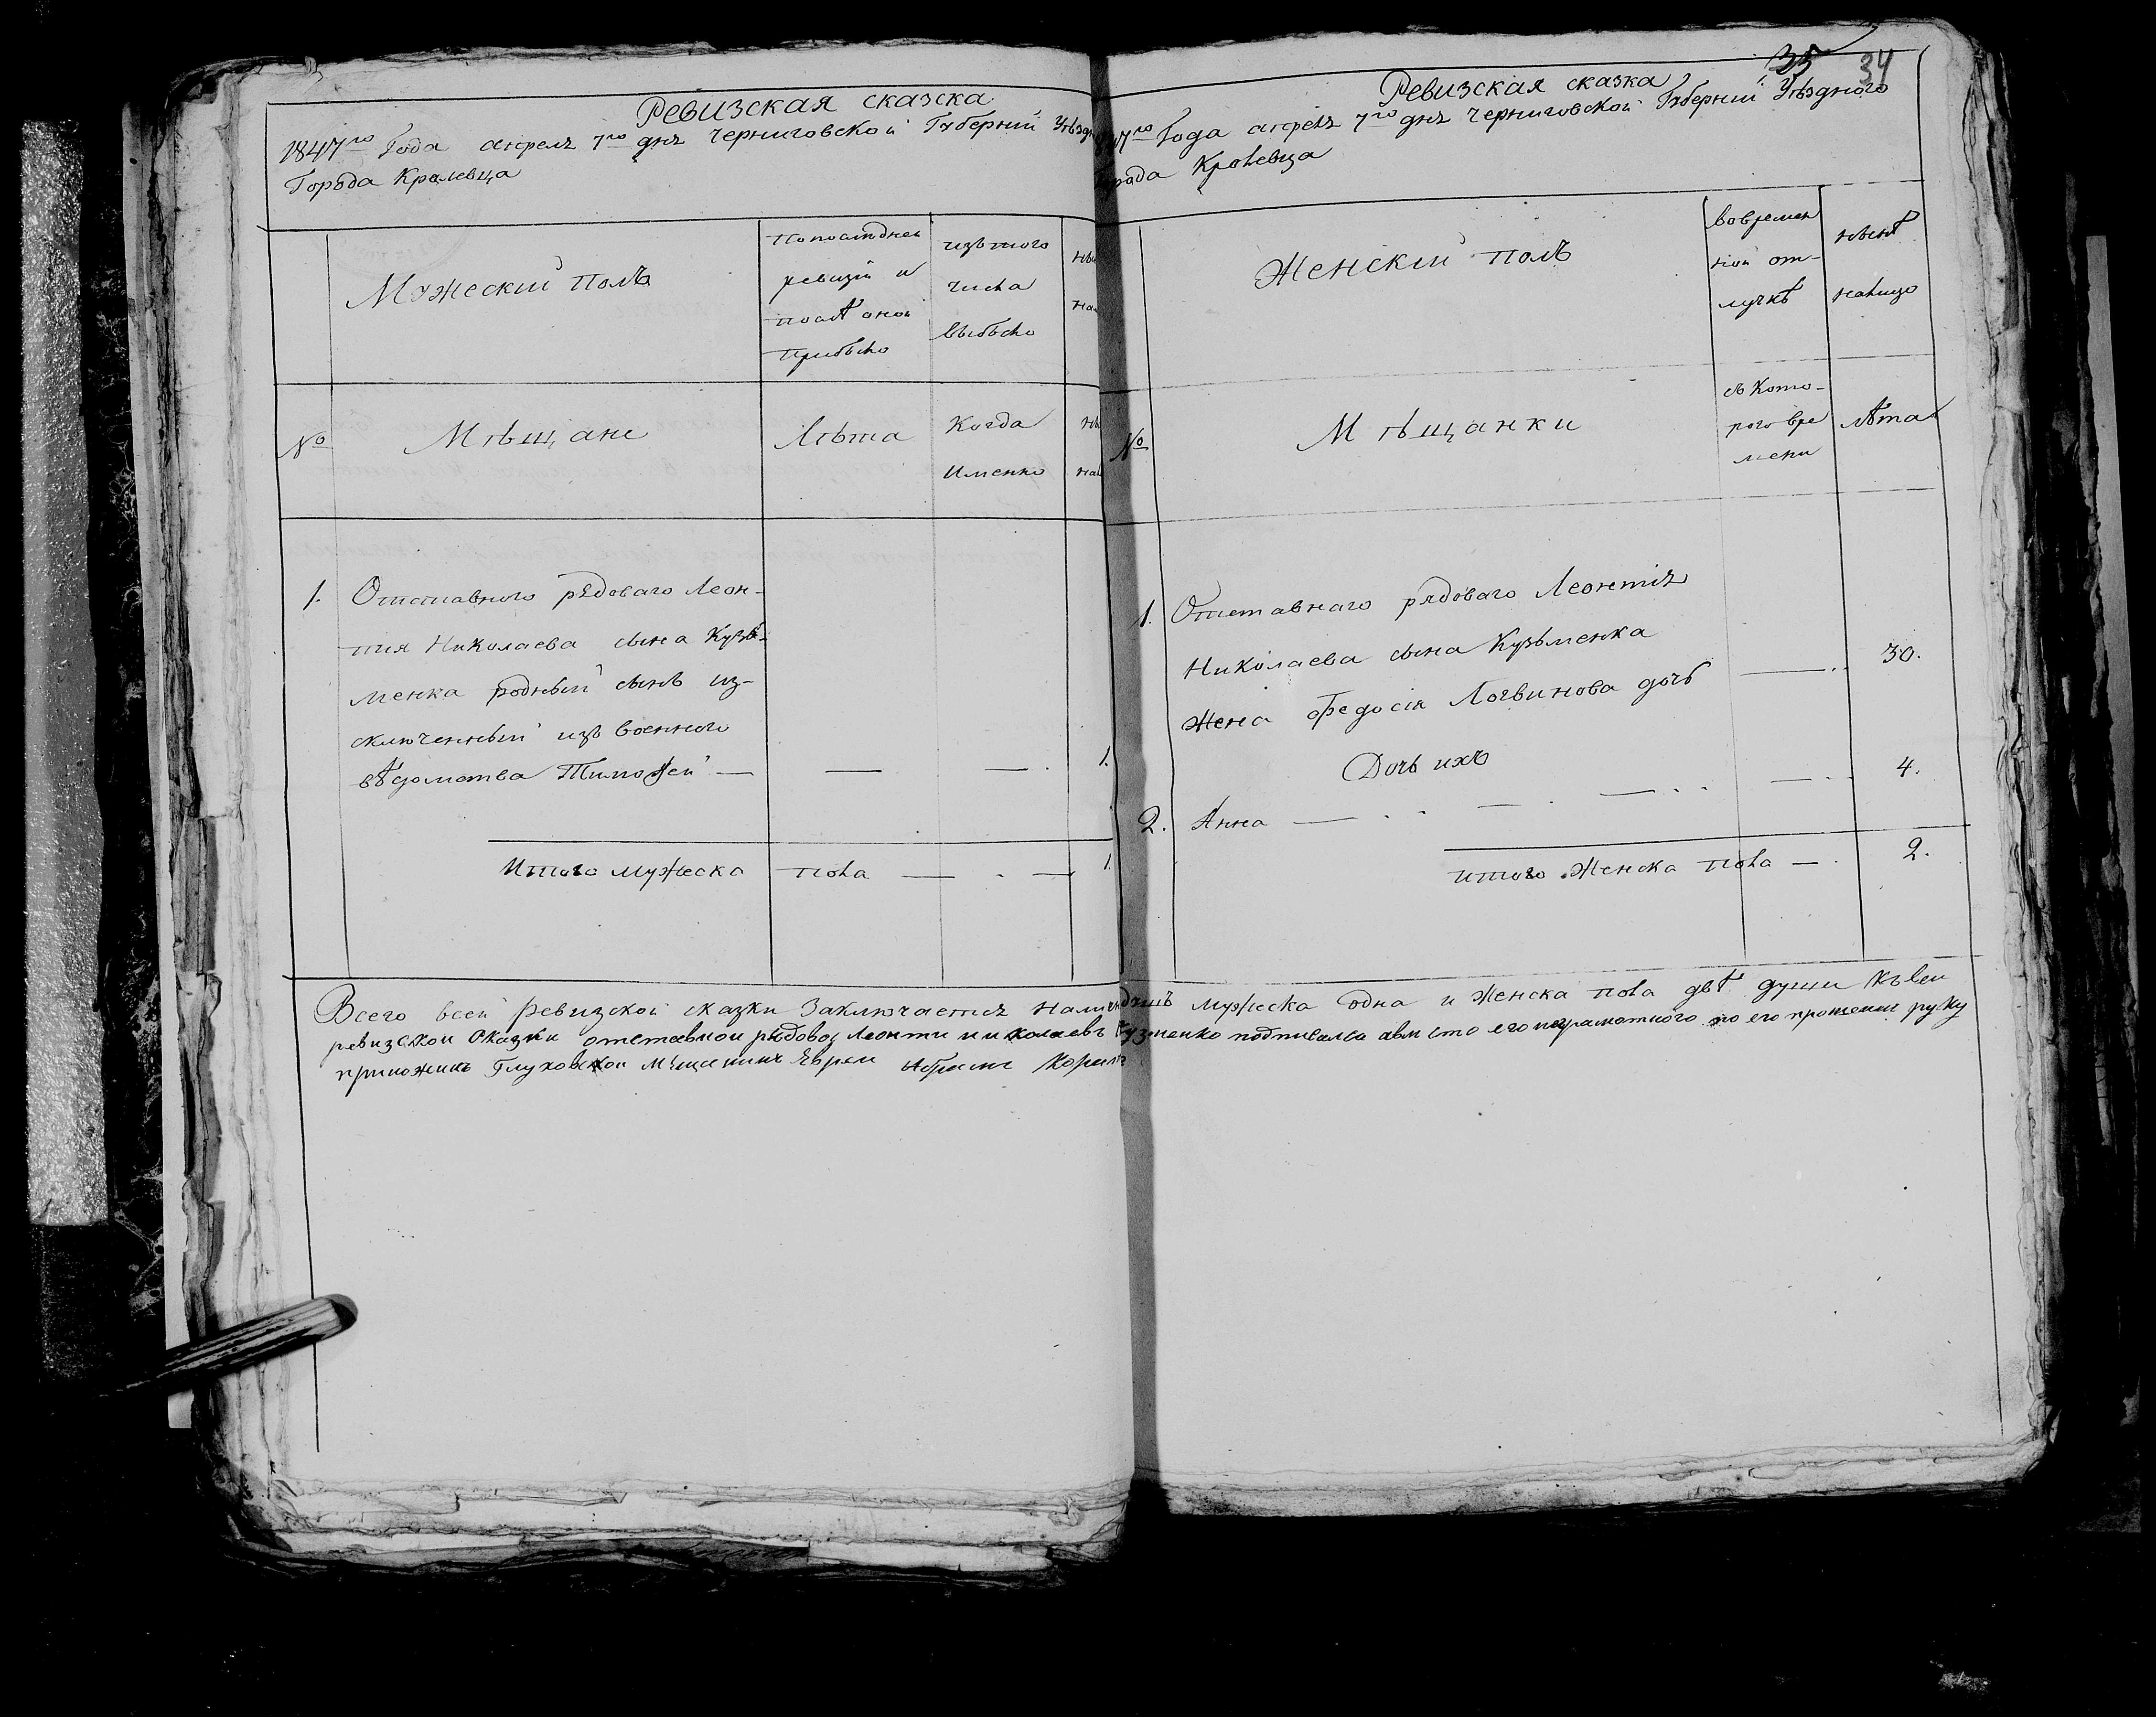 Ревизская сказска
1847го Года апреля 7го дня Черниговской Губерний Уѣздн
Города Кролевца
Мужеский полъ
По последней
ревизий и
послѣ оной
прибыло
изъ того
числа
выбыло
ны
на
№
Мѣщане
Лѣта
Когда
Именно
ны
на
1. Отставного рядоваго Леон-
тия Николаева сына Кузь-
менка родный сынъ из-
ключенный изъ военного
вѣдомства Тимофей — — — . 1.
Итого мужеска пола — . — 1.
35 34
Ревизская сказка
47го Года апреля 7го дня Черниговской Губерний Уѣздного
орода Кролевца
Женский полъ
Во времен
ной от-
лучкѣ
нынѣ
налицо
№
Мѣщанки
съ кото-
рого вре
мени
лѣта
1. Отставнаго рядоваго Леонтия
Николаева сына Кузьменка
жена Федосія Логвинова дочь — . . 30.
Дочь ихъ
2. Анна — . . — . — . . — . . 4.
Итого Женска пола — . 2.
Всего всей ревизской сказки Заключается Мужеска одна и Женска пола двѣ души Къ сей
ревизской сказки отставной рядовой Леонти николаевъ Кузменко подписался а вместо его неграмотного по его прошению руку
приложилъ Глуховской Мещанинъ Еврей Абрамъ